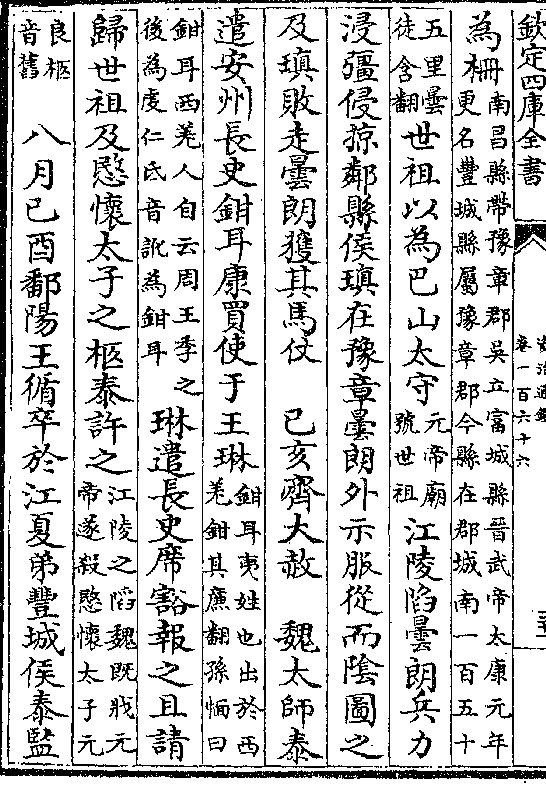 欽定四庫全書
資治通鑑
卷一百六十六
為柵南昌縣帶豫章郡吳立富城縣晉武帝太康元年更名豐城縣屬豫章郡今縣在郡城南一百五十
五里曇徒含翻世祖以為巴山太守元帝廟號世祖江陵陷曇朗兵力
浸彊侵掠鄰縣侯瑱在豫章曇朗外示服從而陰圖之
及瑱敗走曇朗獲其馬仗 己亥齊大赦 魏太師泰
遣安州長史鉗耳康買使于王琳鉗耳夷姓也出於西羌鉗其廉翻孫愐曰
鉗耳西羌人自云周王季之後為虔仁氏音訛為鉗耳琳遣長史席豁報之且請
歸世祖及愍懷太子之柩泰許之江陵之䧟魏既戕元帝遂殺愍懷太子元
良柩音舊 八月己酉鄱陽王循卒於江夏弟豐城侯泰監